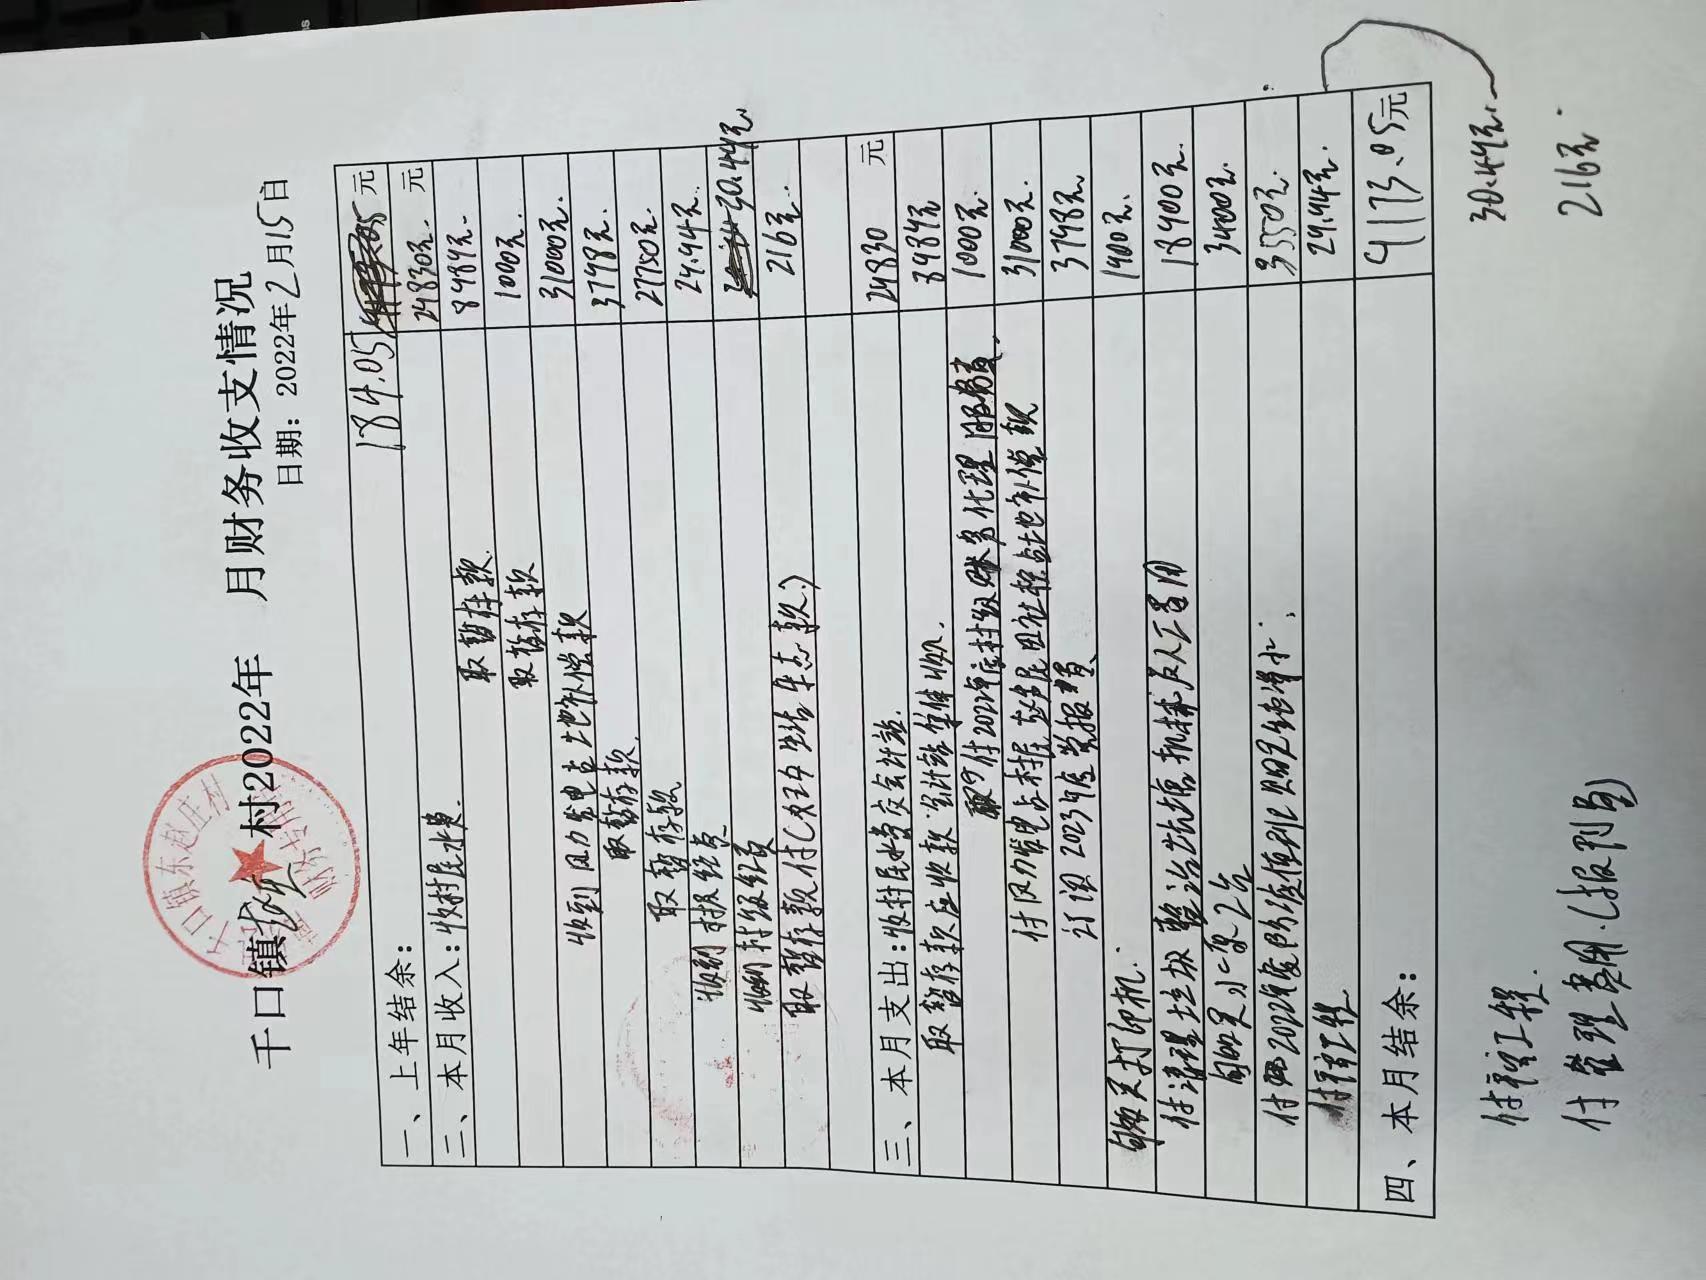 千口镇东赵庄村
财务专用章
千口镇 村2022年 月财务收支情况
日期：2022年2月15日
一、上年结余： 184.05 元
二、本月收入：收村民水费. 24830元. 元
取暂存款. 8989元.
取暂存款 1000元.
收到风力发电占土地补偿款 31000元.
取暂存款. 3798元.
取暂存款 27750元.
收到村级经费 29.94元.
收到村级经费 30.44元.
取暂存款付( 生活 款.) 216元.
三、本月支出：收村民水费交会计站. 24830 元
取暂存款应收款会计站 收入. 8989元
付2022年度村级账务代理服务费. 1000元.
付风力发电占村民 占土地补偿款 31000元.
订阅2023年度党报费 3798元.
购买打印机. 1900元.
付清理垃圾整治坑塘机械及人工费用 18900元.
购买水泵2台 3400元.
付2022年度防疫值班 3550元.
付 工程 29.94元.
四、本月结余： 9173.05元
付 工程. 30.44元.
付管理费用.(报刊费) 216元.